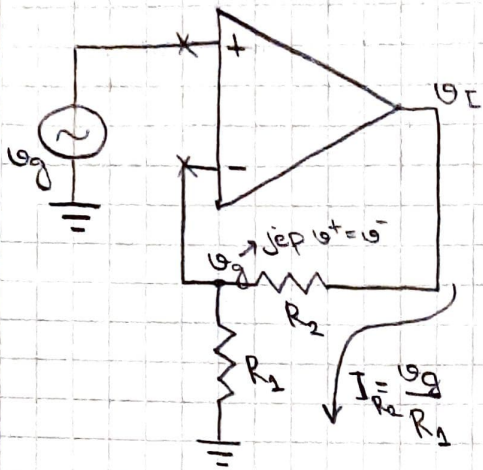 +
vI
vg
−
vg → јер v⁺=v⁻
R2
R1
I_R2 = vg/R1